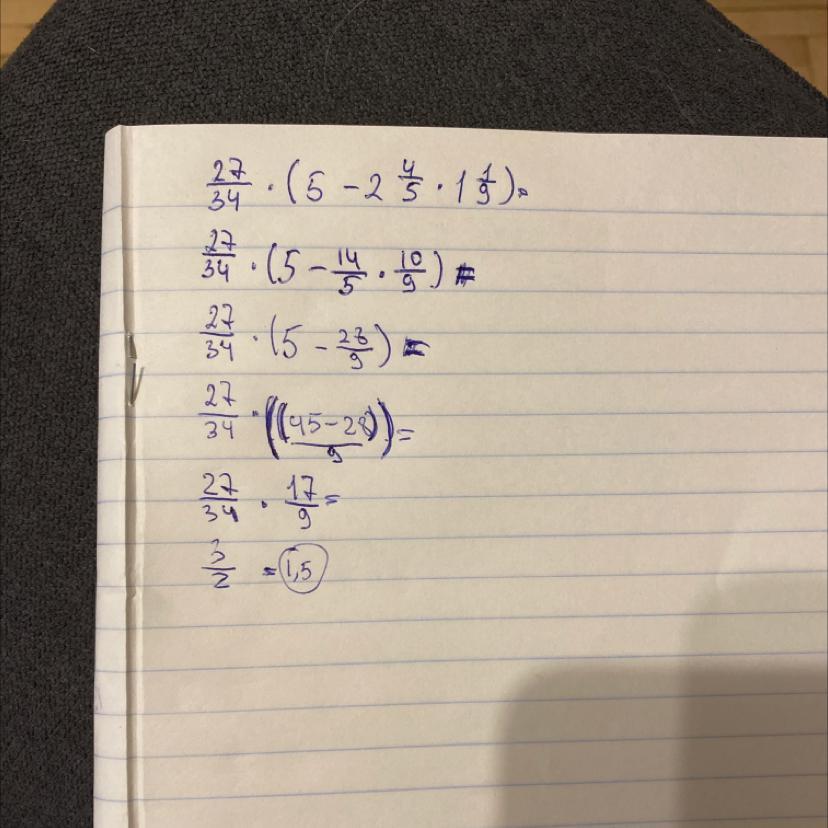 27/34 · (5 - 2 4/5 · 1 1/9) =
27/34 · (5 - 14/5 · 10/9) =
27/34 · (5 - 28/9) =
27/34 · ((45-28)/9) =
27/34 · 17/9 =
3/2 = 1,5